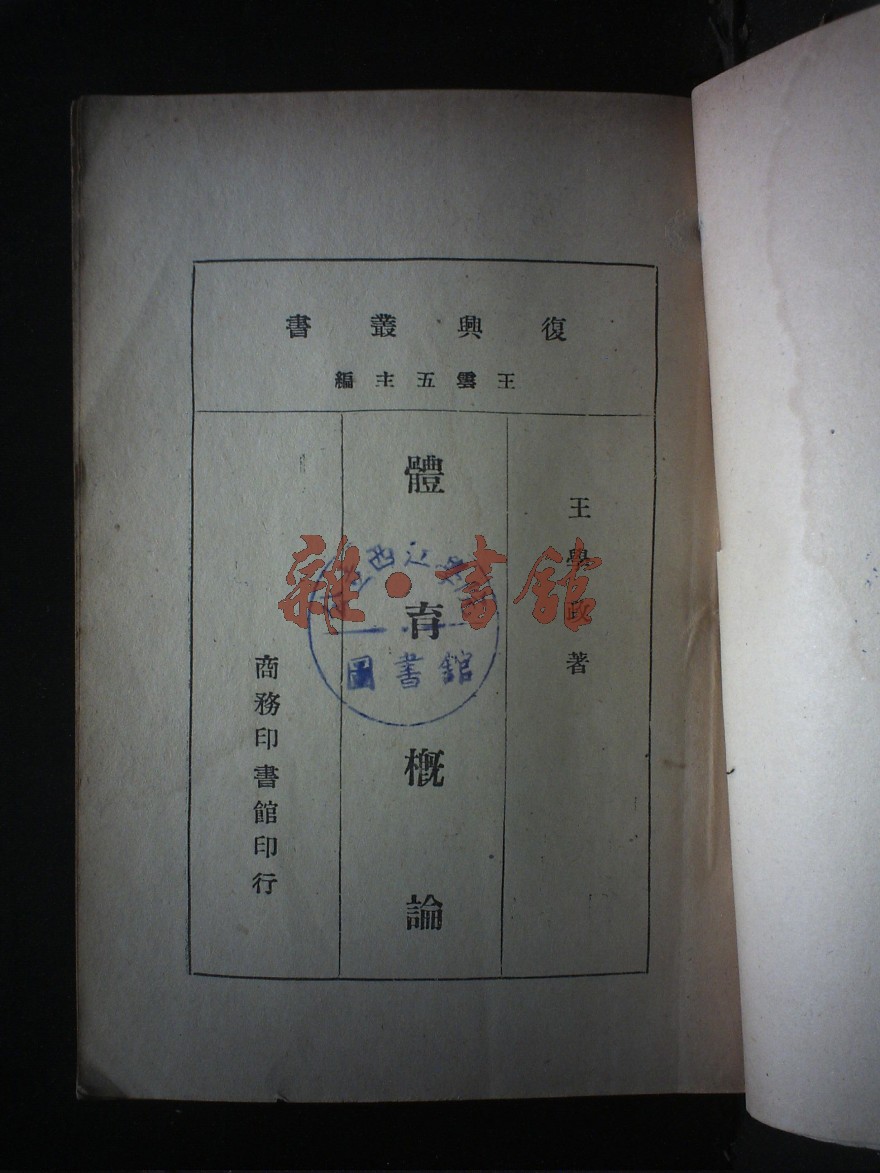 復興叢書
王雲五主編
王學政著
體育概論
商務印書館印行
雜·書館
圖書館